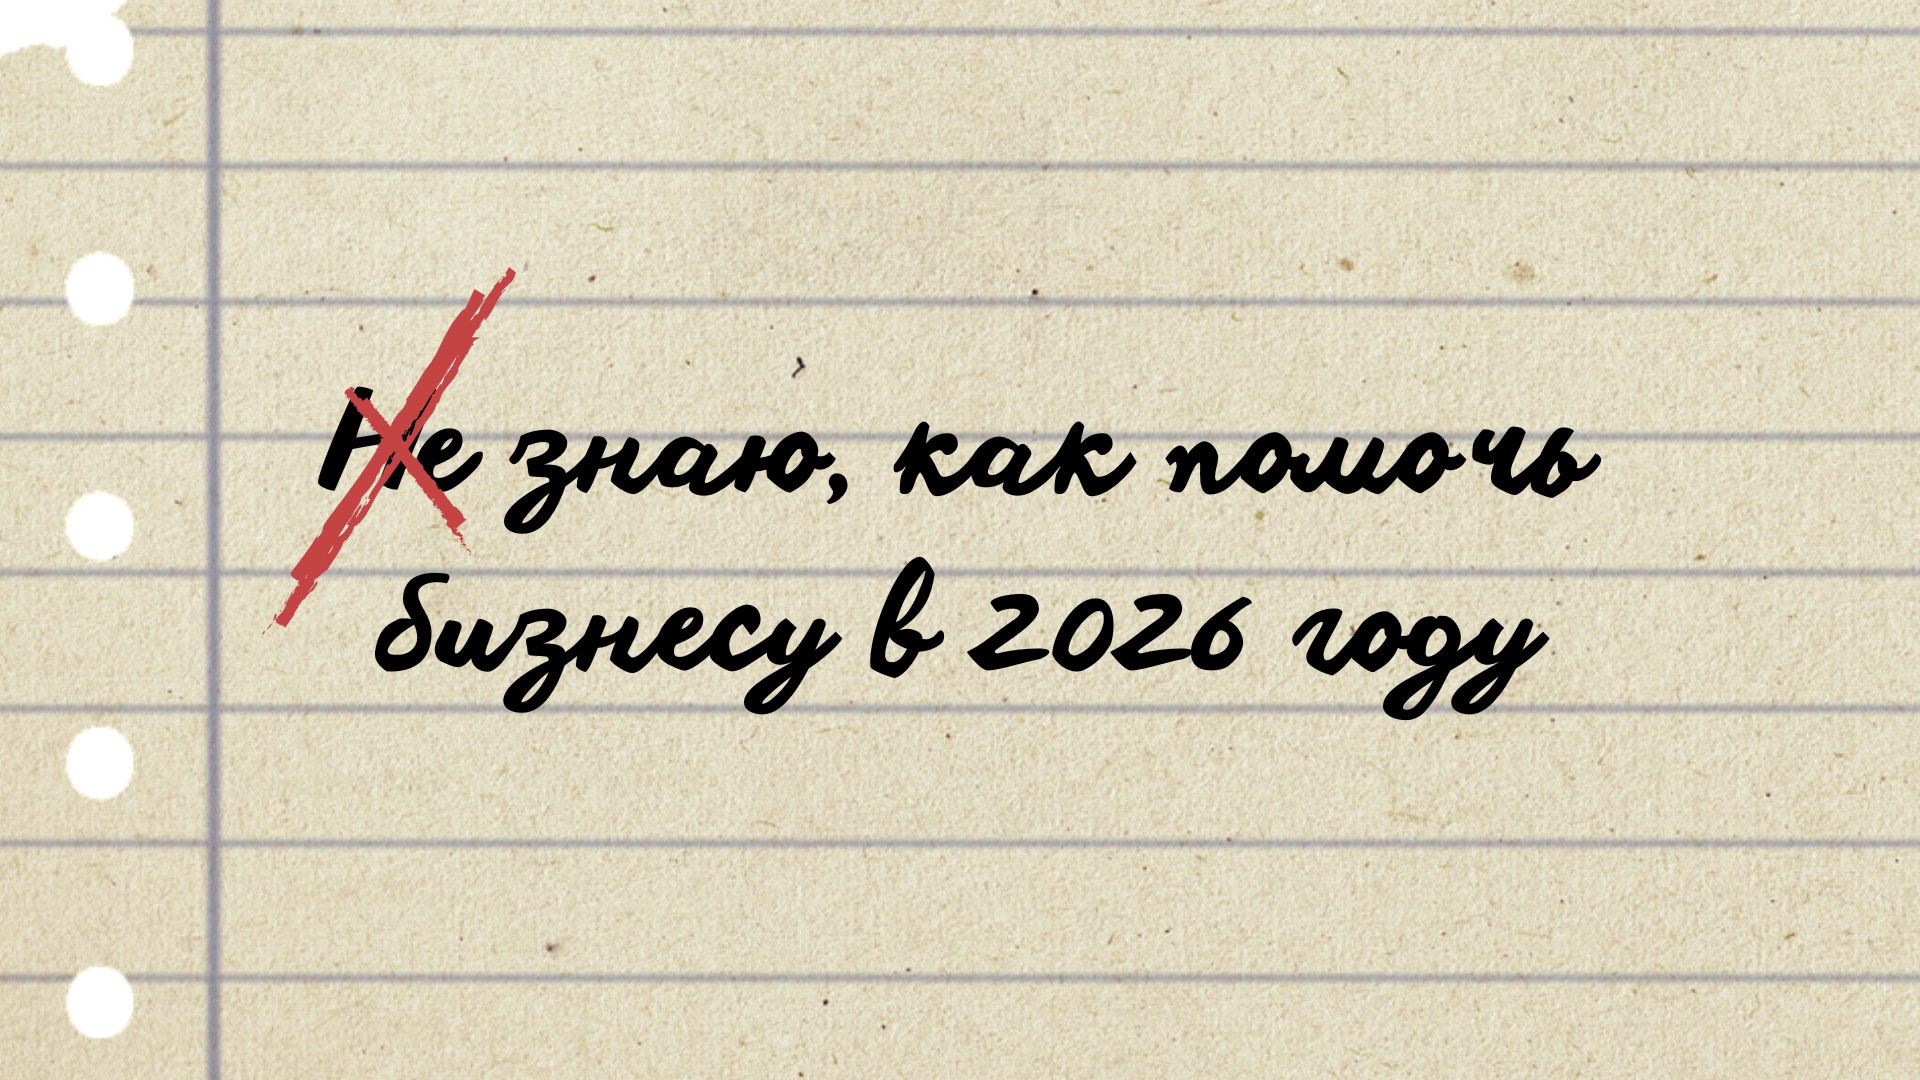 Не знаю, как помочь
бизнесу в 2026 году